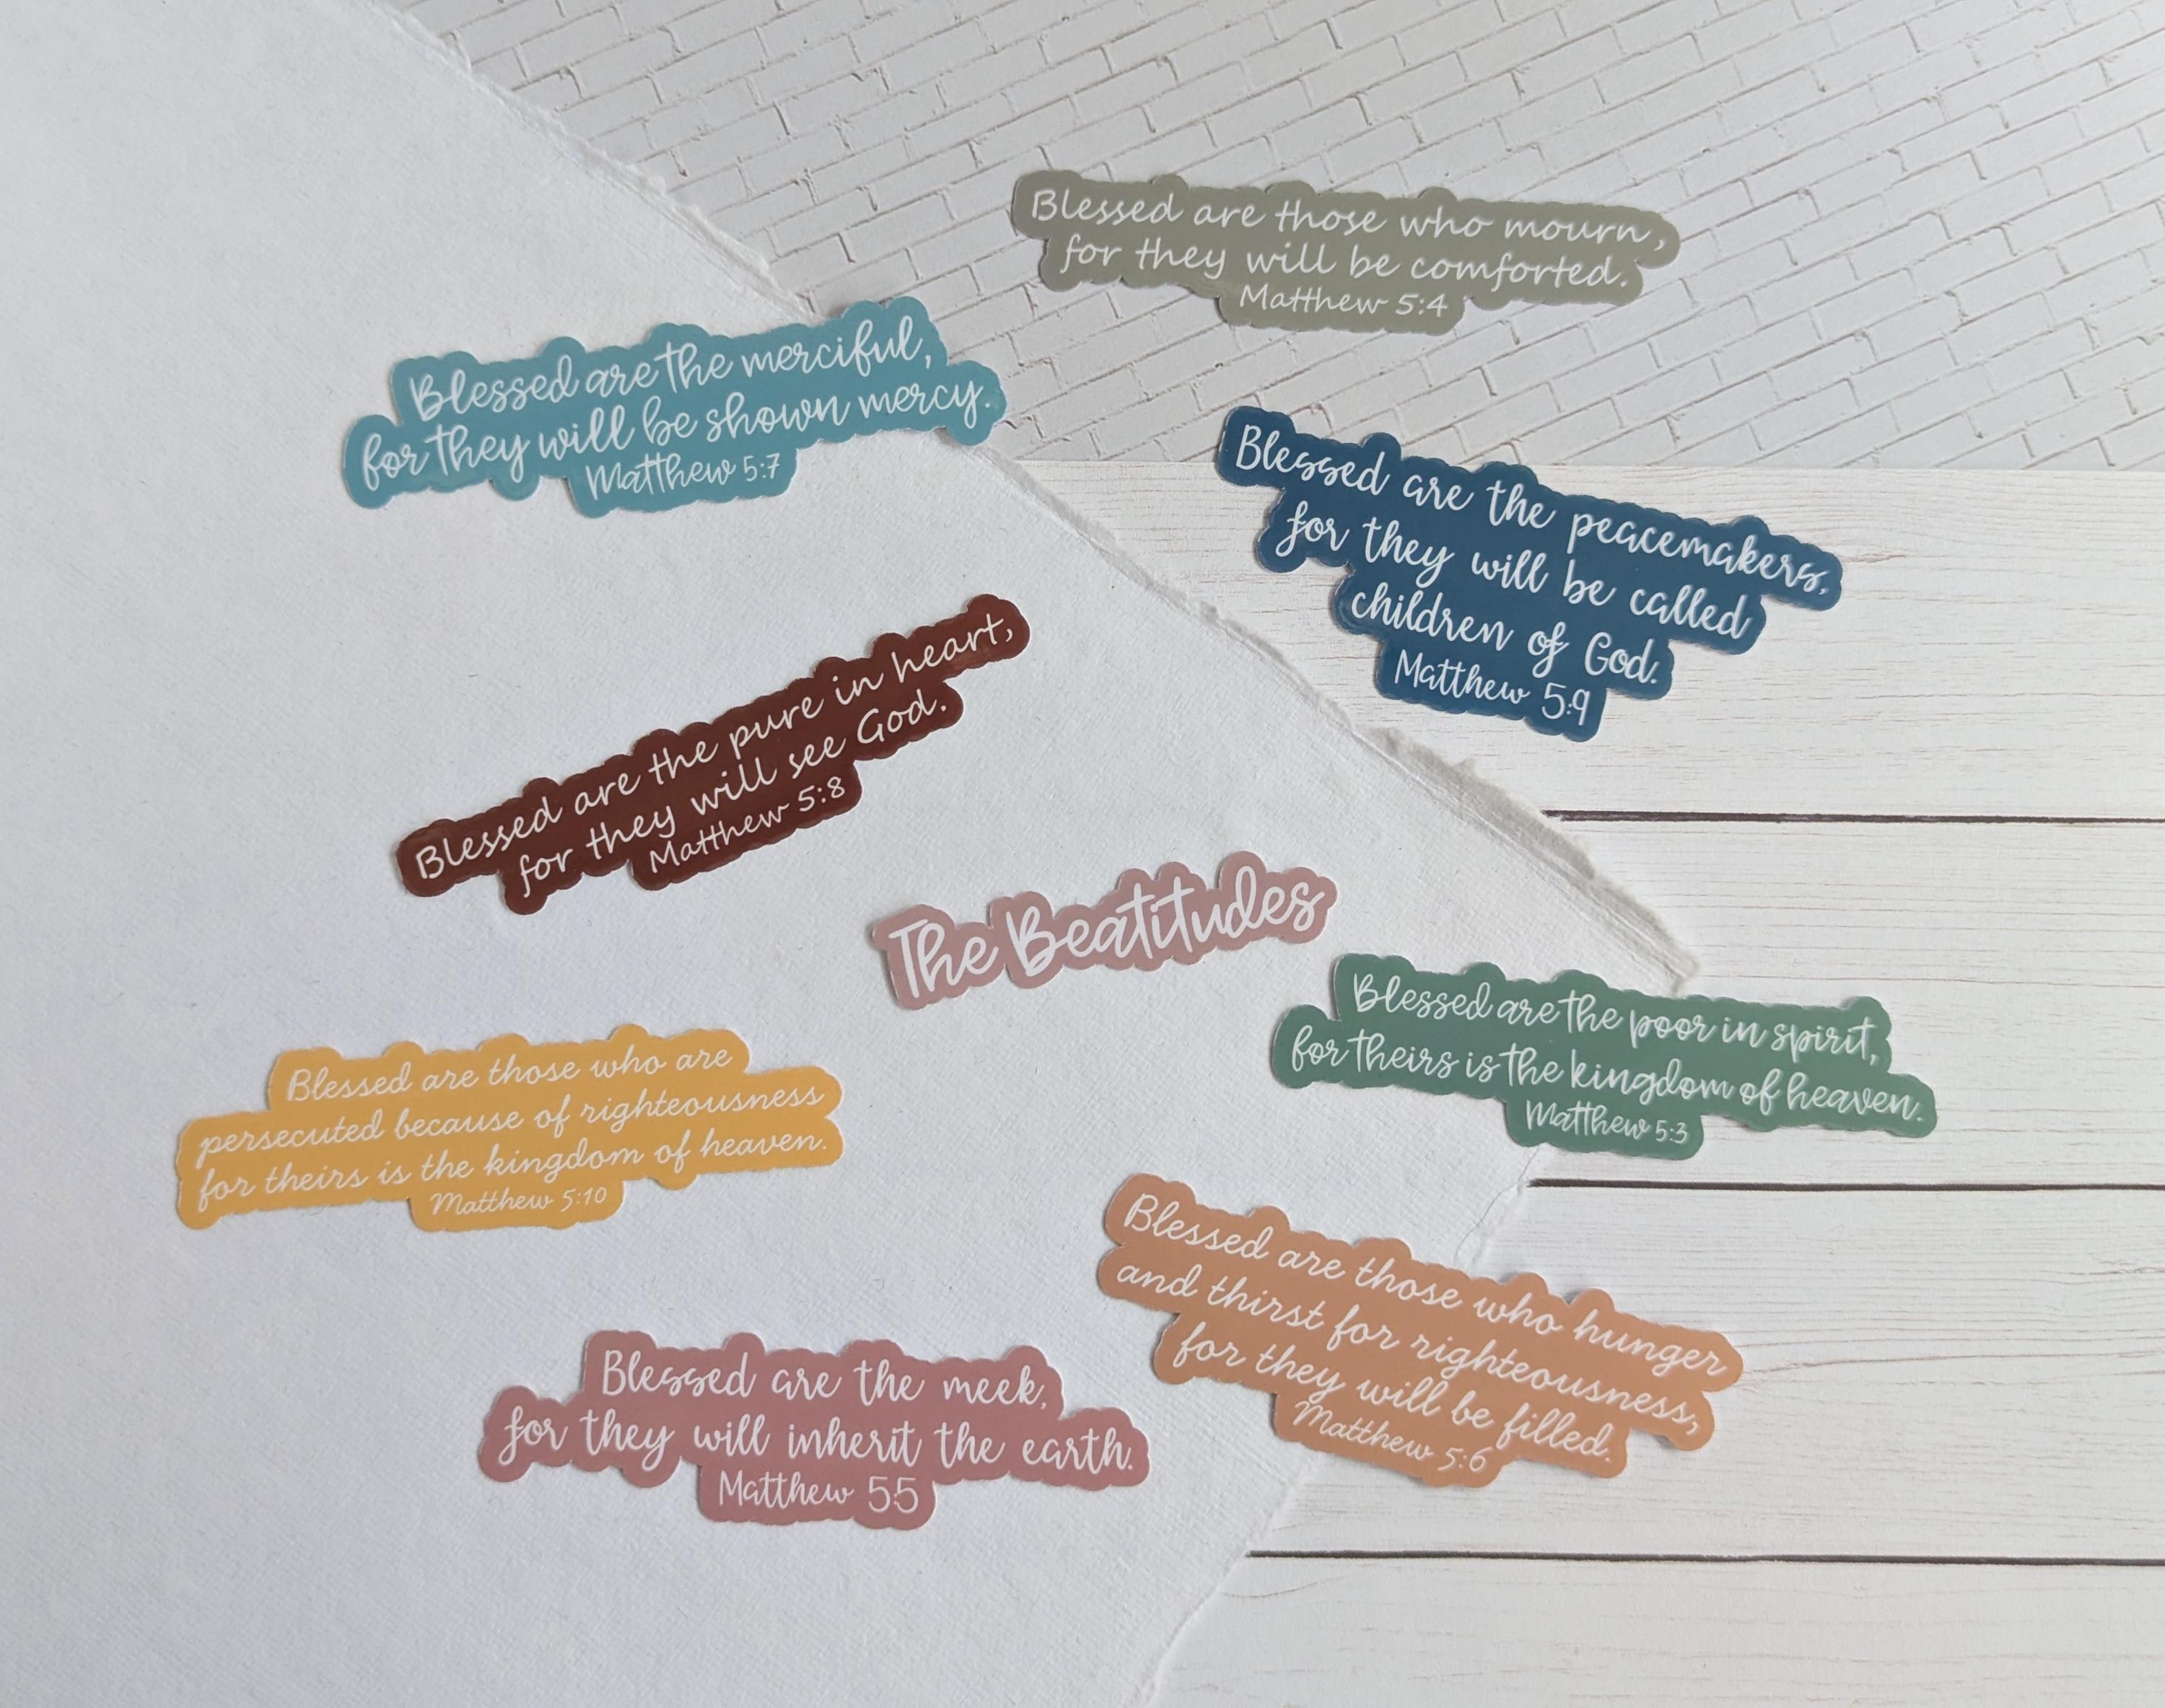 Blessed are those who mourn,
for they will be comforted.
Matthew 5:4
Blessed are the merciful,
for they will be shown mercy.
Matthew 5:7
Blessed are the peacemakers,
for they will be called
children of God.
Matthew 5:9
Blessed are the pure in heart,
for they will see God.
Matthew 5:8
The Beatitudes
Blessed are the poor in spirit,
for theirs is the kingdom of heaven.
Matthew 5:3
Blessed are those who are
persecuted because of righteousness
for theirs is the kingdom of heaven.
Matthew 5:10
Blessed are those who hunger
and thirst for righteousness,
for they will be filled.
Matthew 5:6
Blessed are the meek,
for they will inherit the earth.
Matthew 5:5